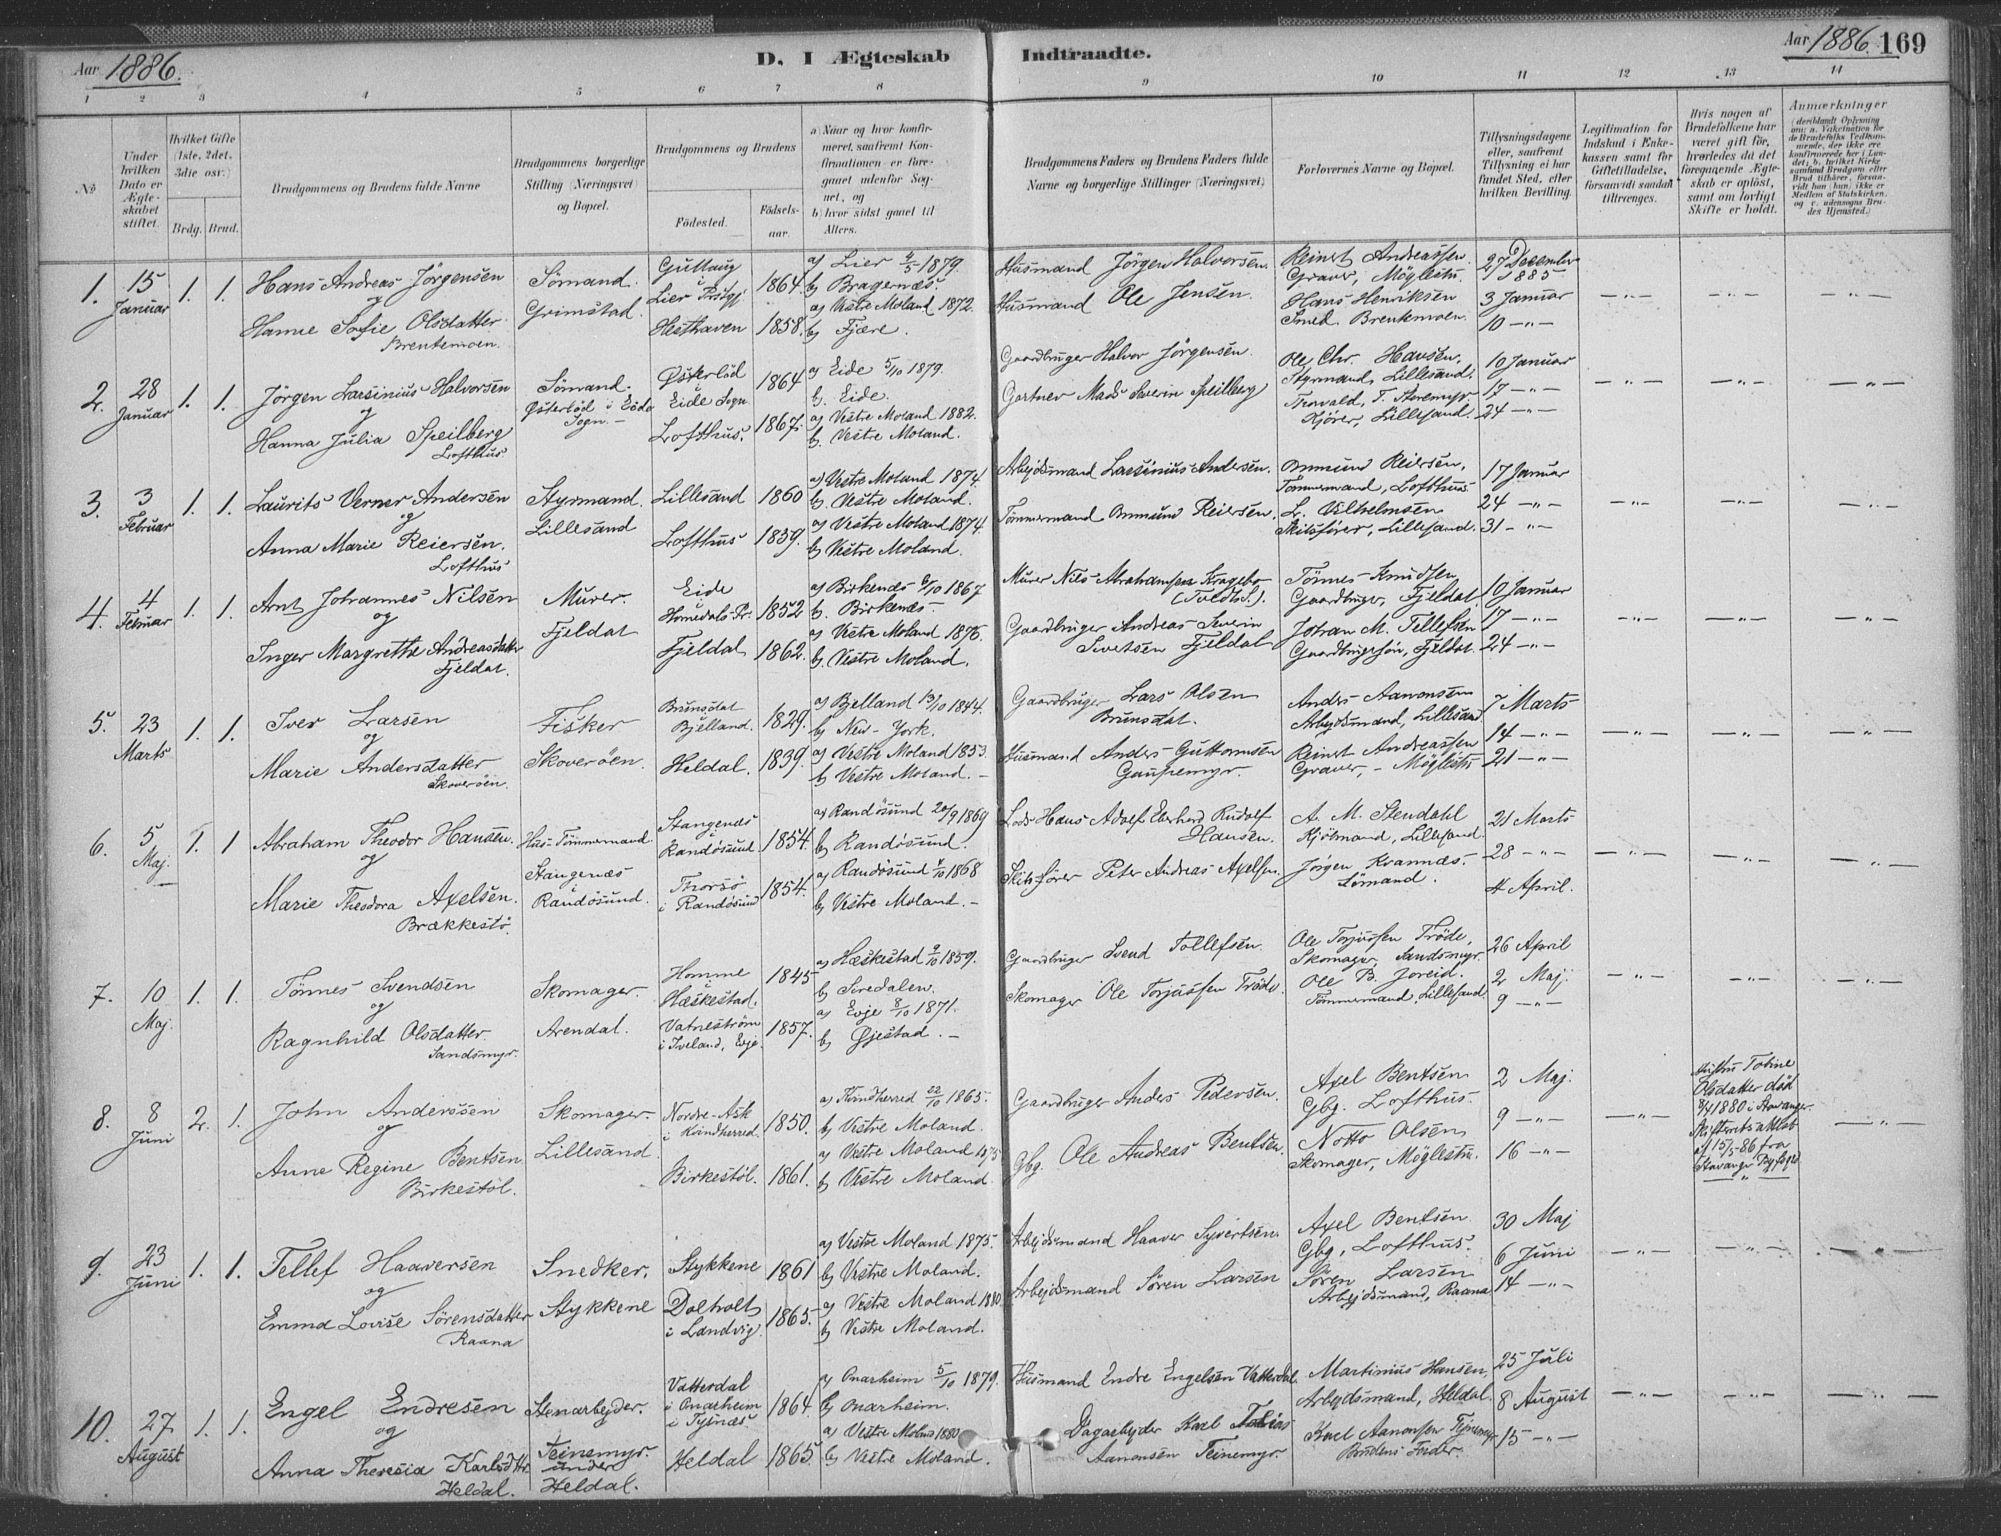 Aar 1886.
D. I Ægteskab Indtraadte.
Aar 1886. 169
1 2 3 4 5 6 7 8 9 10 11 12 13 14
No
Under hvilken Dato er Ægteskabet stiftet.
Hvilket Gifte (1ste, 2det, 3die osv.)
Brdg. Brud.
Brudgommens og Brudens fulde Navne
Brudgommens borgerlige Stilling (Næringsvei) og Bopæl.
Brudgommens og Brudens
Födested. Födselsaar.
a) Naar og hvor konfirmeret, saafremt Konfirmationen er foregaaet udenfor Sognet, og
b) hvor sidst gaaet til Alters.
Brudgommens Faders og Brudens Faders fulde Navne og borgerlige Stillinger (Næringsvei)
Forlovernes Navne og Bopæl.
Tillysningsdagene eller, saafremt Tillysning ei har fundet Sted, efter hvilken Bevilling.
Legitimation for Indskud i Enkekassen samt for Giftetilladelse, forsaavidt saadan tiltrænges.
Hvis nogen af Brudefolkene har været gift för, hvorledes da det foregaaende Ægteskab er oplöst, samt om lovligt Skifte er holdt.
Anmærkninger
1. 15 Januar 1. 1.
Hans Andreas Jörgensen
og
Hanne Sofie Olsdatter
Brentemoen.
Sömand.
Grimstad.
Gullaug
i Lier Prstgj. 1864.
Hesthaven 1858.
a) Lier 4/5 1879.
b) Bragernæs.
a) Vestre Moland 1872.
b) Fjære.
Husmand Jörgen Halvorsen.
Husmand Ole Jensen.
Reinert Andreassen.
Graver, Möglestu.
Hans Henriksen
Smed. Brentemoen.
27 December 1885
3 Januar
10 —"—
2. 28 Januar 1. 1.
Jörgen Larsinius Halvorsen
og
Hanna Julia Speilberg
Lofthus.
Sömand.
Østeröd i Eide
Sogn.
Østeröd
i Eide Sogn 1864
Lofthus. 1867.
a) Eide 5/10 1879.
b. Eide.
a) Vestre Moland 1882.
b. Vestre Moland.
Gaardbruger Halvor Jörgensen.
Gartner Mads Severin Speilberg
Ole Chr. Hansen,
Styrmand, Lillesand.
Thorvald. T. Storemyr
Kjörer, Lillesand.
10 Januar
17 —"—
24 —"—
3. 3 Februar 1. 1.
Laurits Verner Andersen
og
Anna Marie Reiersen.
Lofthus
Styrmand.
Lillesand
Lillesand 1860
Lofthus 1859.
a) Vestre Moland 1874.
b) Vestre Moland.
a) Vestre Moland 1874.
b) Vestre Moland.
Arbejdsmand Larsinius Andersen.
Tömmermand Ommund Reiersen.
Ommund Reiersen,
Tömmermand, Lofthus.
L. Vilhelmsen
Skibsförer, Lillesand.
17 Januar
24 —"—
31 —"—
4. 4 Februar 1. 1.
Arnt Johannes Nilsen
og
Inger Margrethe Andreasdatter
Fjeldal.
Murer.
Fjeldal
Eide
Homedals Pr. 1852
Fjeldal 1862.
a) Birkenæs 6/10 1867
b. Birkenæs.
a) Vestre Moland 1876.
b. Vestre Moland.
Murer Nils Abrahamsen Kragebo
(Tvedts S.).
Gaardbruger Andreas Severin
Sivertsen Fjeldal
Tönnes Knudsen
Gaardbruger, Fjeldal
Johan M. Tellefsen
Gaardbrugersön, Fjeldal.
10 Januar
17 —"—
24 —"—
5. 23 Marts 1. 1.
Iver Larsen
og
Marie Andersdatter
Skoveröen.
Fisker
Skoveröen.
Brunsdal
Bjelland. 1829.
Heldal. 1839.
a) Bjelland 13/10 1844.
b) New-York.
a) Vestre Moland 1853
b) Vestre Moland.
Gaardbruger Lars Olsen
Brunsdal.
Husmand Anders Guttormsen
Gaupemyr.
Anders Aanonsen
Arbejdsmand, Lillesand
Reinert Andreassen
Graver, Möglestu
7 Marts
14 —"—
21 —"—
6. 5 Maj. 1. 1
Abraham Theodor Hansen.
og
Marie Theodora Axelsen.
Brækkestö.
Hus-Tömmermand.
Stangenæs
i Randösund.
Stangenæs
i Randösund. 1854.
Thorsö
i Randösund 1854.
a) Randösund 20/9 1869
b) Randösund.
a) Randösund 4/10 1868
b) Vestre Moland.
Lods Hans Adolf Eberhard Rudolf
Hansen.
Skibsförer Peter Andreas Axelsen.
A. M. Stendahl
Kjöbmand, Lillesand
Jörgen Krannæs.
Sömand.
21 Marts
28 —"—
4 April.
7. 10 Maj. 1. 1.
Tönnes Svendsen
og
Ragnhild Olsdatter
Sandsmyr.
Skomager.
Arendal.
Homme
i Hæskestad. 1845
Vatneström
i Iveland, Evje. 1857.
a) Hæskestad 9/10 1859.
b) Siredalen.
a) Evje 8/10 1871.
b) Øjestad.
Gaardbruger Svend Tollefsen.
Skomager Ole Torjussen Fröde.
Ole Torjussen Fröde,
Skomager, Sandsmyr.
Ole B. Joreid.
Tömmermand, Lillesand.
26 April
2 Maj.
9 —"—
8. 8 Juni 2. 1.
John Anderssen
og
Anne Regine Bentsen
Birkestöl.
Skomager.
Lillesand.
Nordre-Ask
i Kvindherred. 1850.
Birkestöl. 1861.
a) Kvindherred 22/10 1865.
b) Vestre Moland.
a) Vestre Moland 1875
b) Vestre Moland.
Gaardbruger Anders Pedersen.
Gbg. Ole Andreas Bentsen.
Axel Bentsen
Gbg. Lofthus.
Notto Olsen
Skomager, Möglestu.
2 Maj.
9 —"—
16 —"—
Olsdatter död
1880 i Stavanger.
Skifterets attest
af 15/5-86 fra
Stavanger Byfoged
9. 23 Juni 1. 1.
Tellef Haaversen
og
Emma Lovise Sörensdatter
Raana
Snedker.
Stykkene
Stykkene 1861
Dolholt
i Landvig. 1865.
a) Vestre Moland 1875.
b) Vestre Moland.
a) Vestre Moland 1880
b) Vestre Moland.
Arbejdsmand Haaver Syvertsen.
Arbejdsmand Sören Larsen
Axel Bentsen
Gbg, Lofthus.
Sören Larsen
Arbejdsmand, Raana
30 Maj
6 Juni
14 —"—
10. 27 August 1. 1.
Engel Endresen
og
Anna Theresia Karlsdtr.
Heldal.
Stenarbejder.
Teinemyr.
under
Heldal.
Vatterdal
i Onarheim
i Tysnæs 1864.
Heldal 1865.
a) Onarheim 5/10 1879.
b) Onarheim.
a) Vestre Moland 1880
b) Vestre Moland.
Husmand Endre Engelsen Vatterdal
Dagarbejder Karl Tobias
Aanonsen Teinemyr.
Martinius Hansen,
Arbejdsmand, Heldal.
Karl Aanonsen Teinemyr
Brudens Fader.
25 Juli
8 August
15 —"—